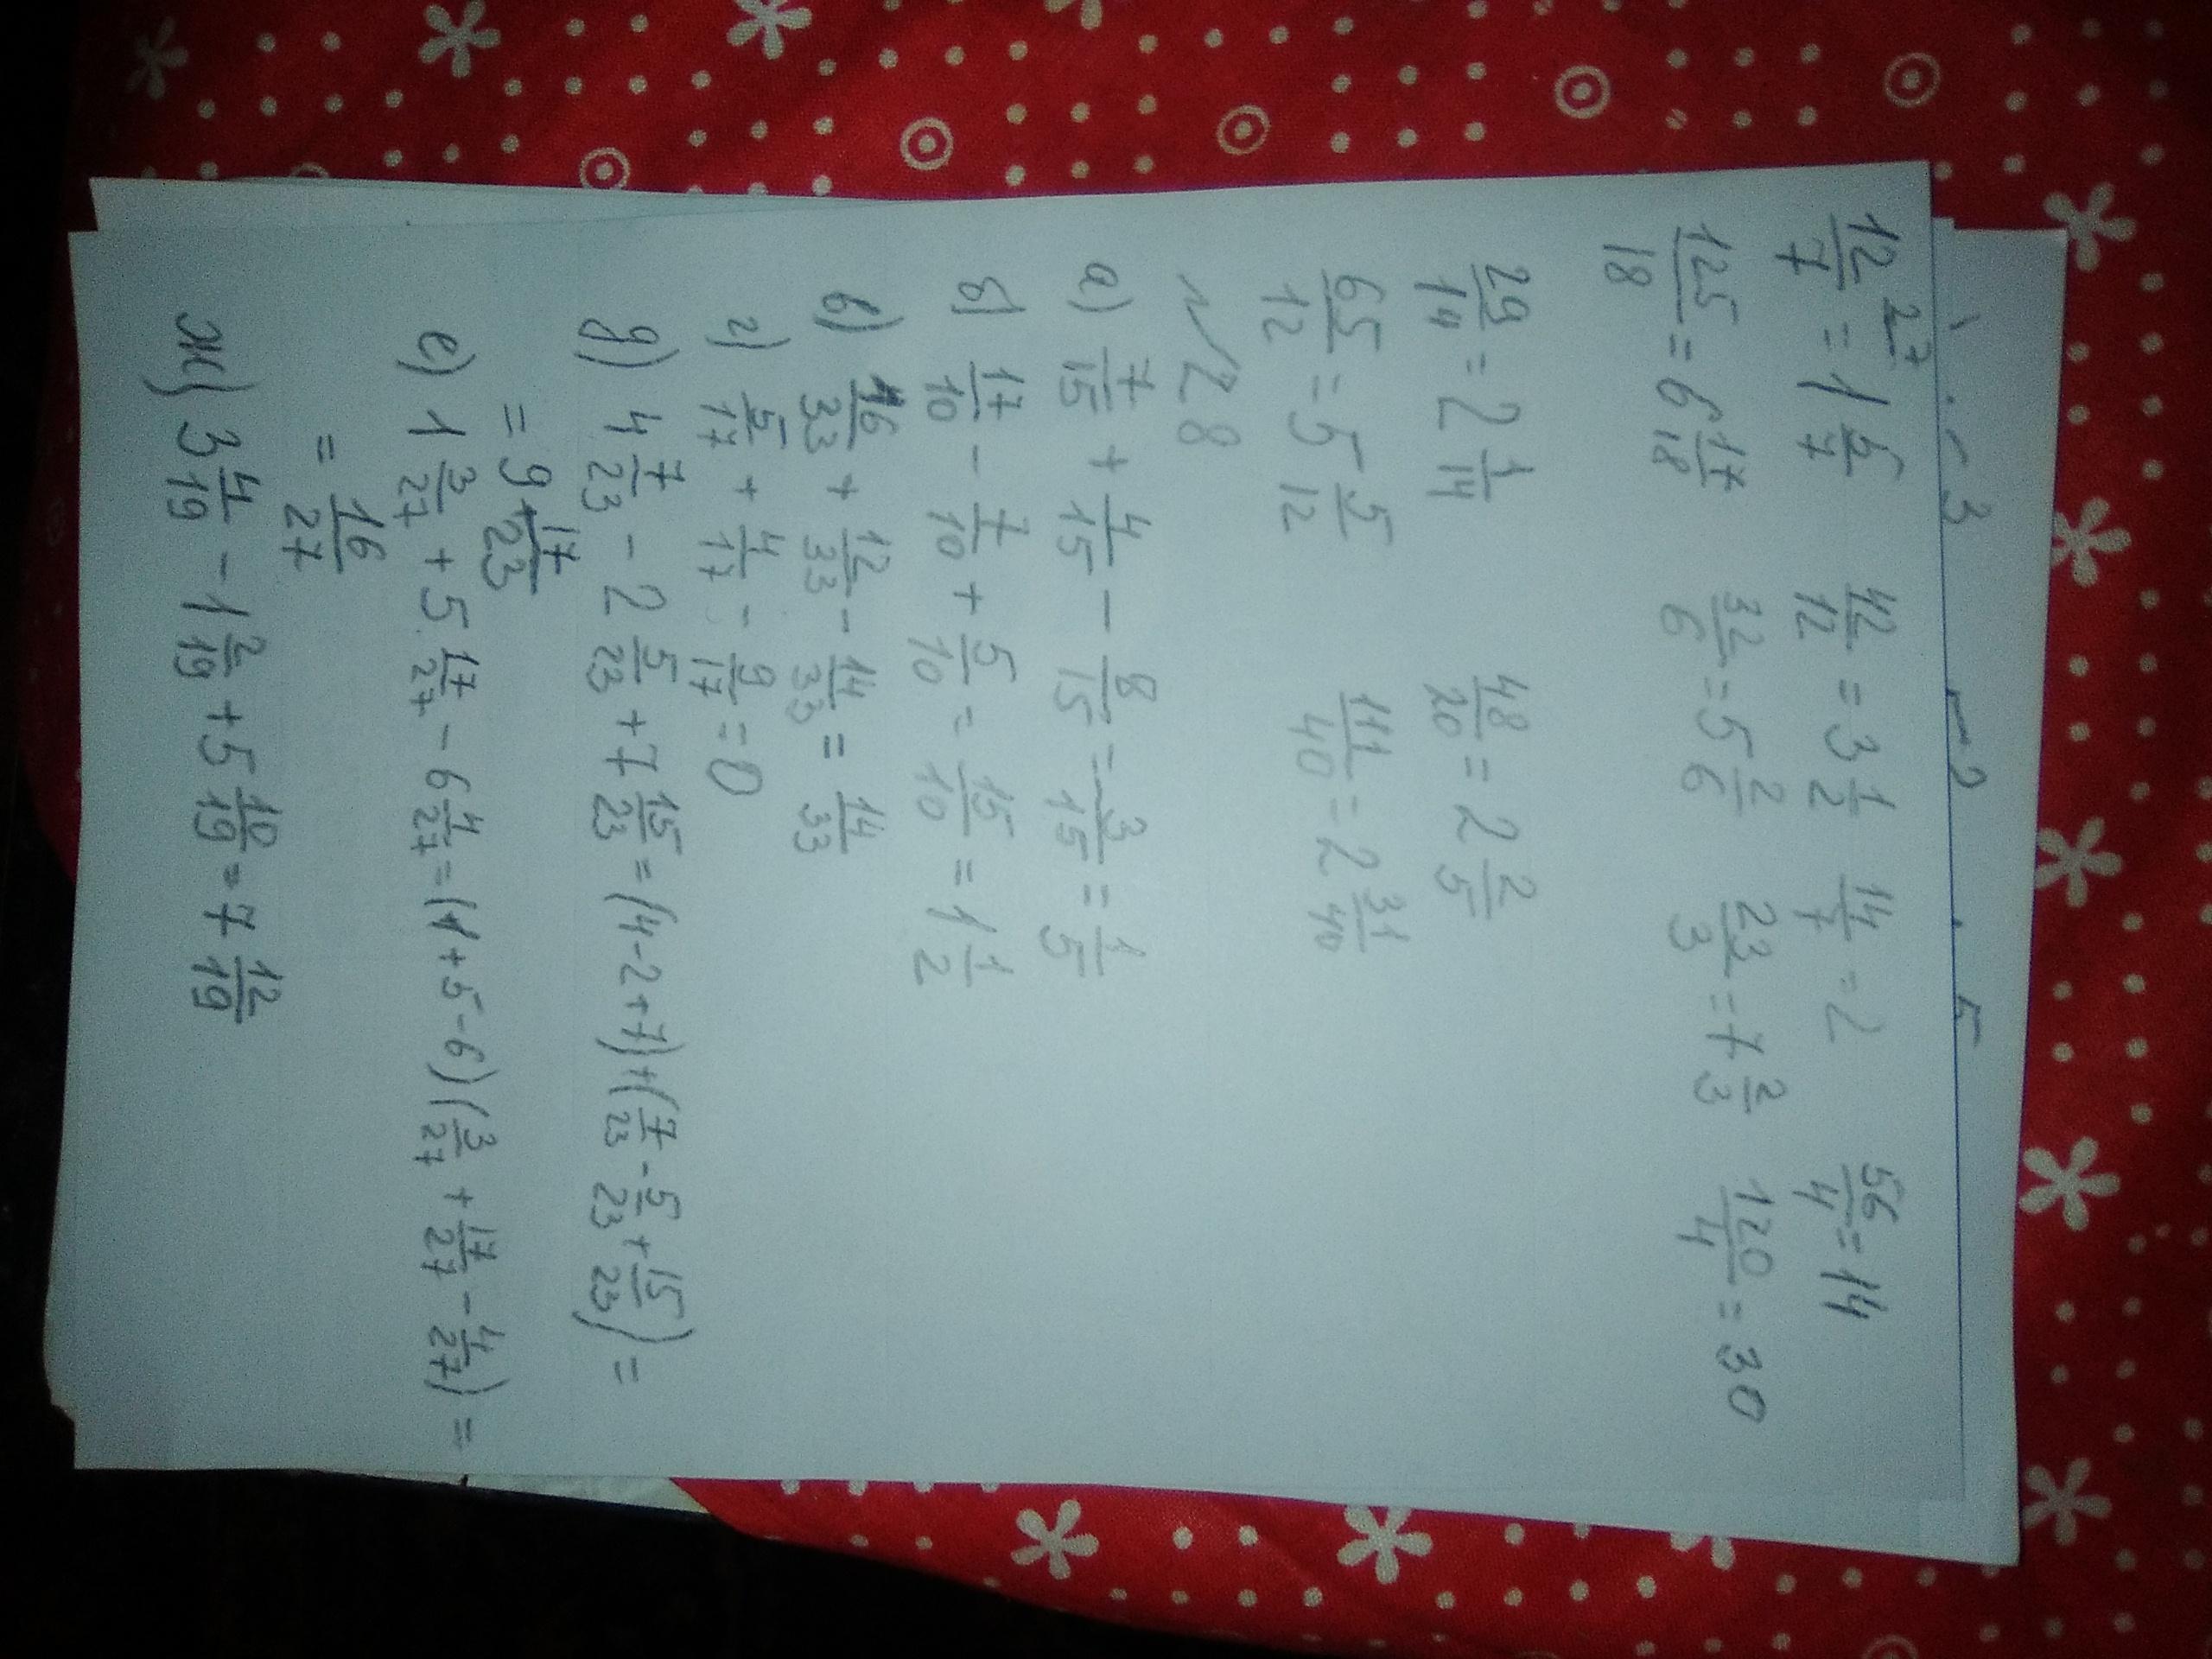 27
12/7 = 1 5/7 42/12 = 3 1/2 14/7 = 2 56/4 = 14
125/18 = 6 17/18 32/6 = 5 2/6 23/3 = 7 2/3 120/4 = 30
29/14 = 2 1/14 48/20 = 2 2/5
65/12 = 5 5/12 111/40 = 2 31/40
№ 28
а) 7/15 + 4/15 - 8/15 = 3/15 = 1/5
б) 17/10 - 7/10 + 5/10 = 15/10 = 1 1/2
в) 16/33 + 12/33 - 14/33 = 14/33
г) 5/17 + 4/17 - 9/17 = 0
д) 4 7/23 - 2 5/23 + 7 15/23 = (4-2+7)+(7/23 - 5/23 + 15/23) =
= 9 + 17/23
е) 1 3/27 + 5 17/27 - 6 4/27 = (1+5-6)(3/27 + 17/27 - 4/27) =
= 16/27
ж) 3 4/19 - 1 2/19 + 5 10/19 = 7 12/19